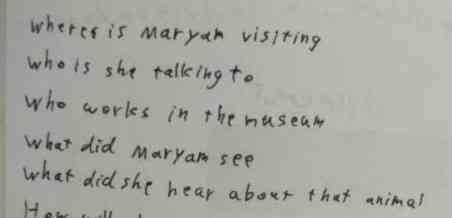 wheres is Maryam visiting
who is she talking to
who works in the museum
what did Maryam see
what did she hear about that animal
How will